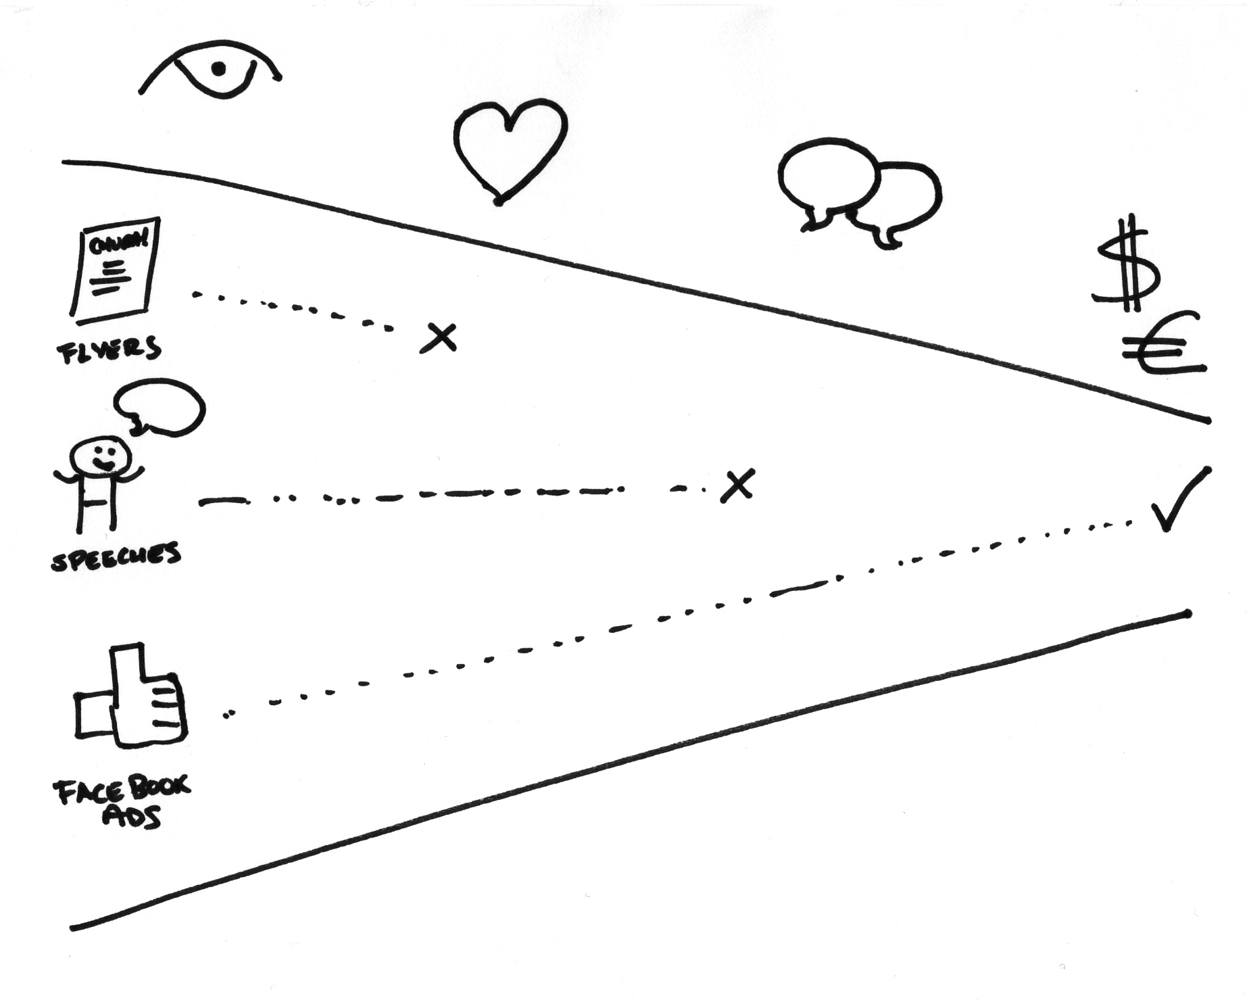 $
€
FLYERS
SPEECHES
FACEBOOK
ADS